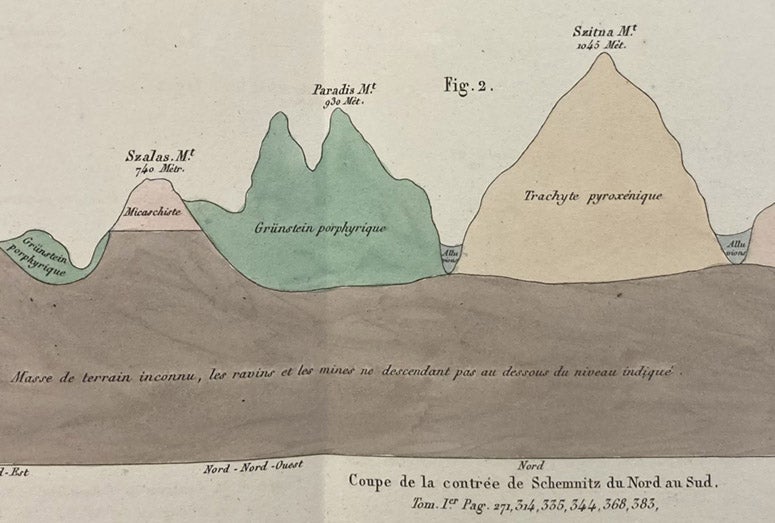 Szitna M.t
1045 Mét.
Fig. 2.
Paradis M.t
930 Mét.
Szalas. M.t
740 Métr.
Micaschiste
Trachyte pyroxénique
Grünstein porphyrique
Grünstein
porphyrique
Allu
vions
Allu
vions
Masse de terrain inconnu, les ravins et les mines ne descendant pas au dessous du niveau indiqué.
d-Est
Nord-Nord-Ouest
Nord
Coupe de la contrée de Schemnitz du Nord au Sud.
Tom. I.er Pag. 271, 314, 335, 344, 368, 383,